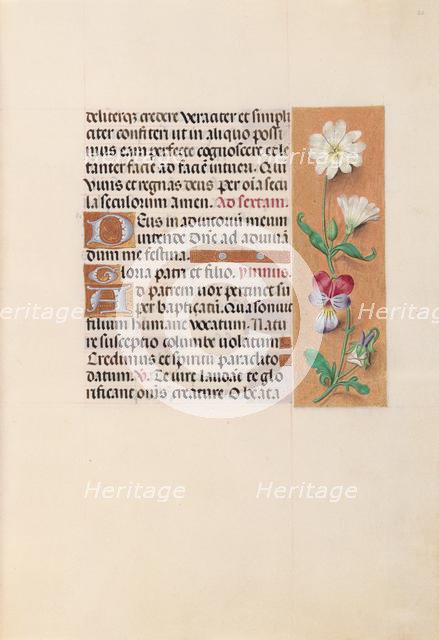 deliterq; credere veraciter et simpli
citer confiteri ut in aliquo possi
mus eam perfecte cognoscere et le
tanter facie ad faciem intueri. Qui
vivis et regnas deus per oīa secu
la seculorum Amen. Ad sextam.
Deus in adiutorium meum
intende Dñe ad adiuva
dum me festina.
Gloria patri et filio. ymnus.
Ad patrem
per baptismū. Qua sonuit
filium humane vocatum. Natu
re susceptio columbe volatum
Credimus et spiritū paraclito
datum. V. Te vire laudāt te glo
rificant creature O beata
Heritage
Heritage
Heritage
Heritage
Heritage
Heritage